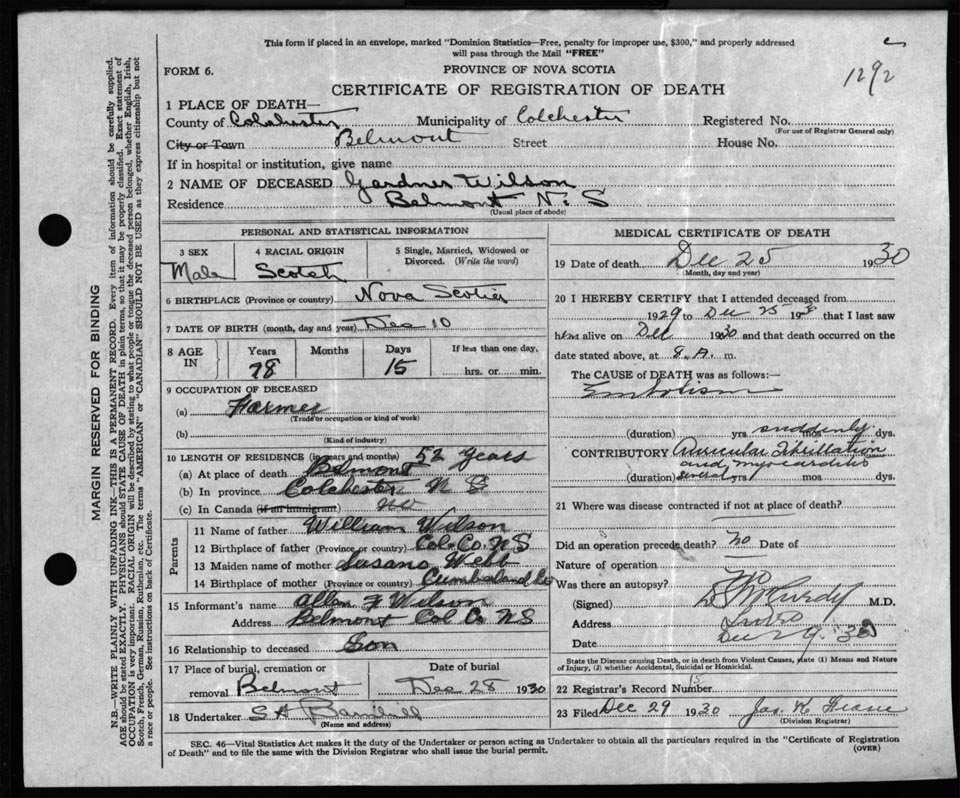 This form if placed in an envelope, marked "Dominion Statistics—Free, penalty for improper use, $300," and properly addressed
will pass through the Mail "FREE"
1292
FORM 6.
PROVINCE OF NOVA SCOTIA
CERTIFICATE OF REGISTRATION OF DEATH
1 PLACE OF DEATH—
County of Colchester Municipality of Colchester Registered No.
(For use of Registrar General only)
City or Town Belmont Street House No.
If in hospital or institution, give name
2 NAME OF DECEASED Gardner Wilson
Residence Belmont N. S
(Usual place of abode)
PERSONAL AND STATISTICAL INFORMATION
3 SEX 4 RACIAL ORIGIN 5 Single, Married, Widowed or
Divorced. (Write the word)
Male Scotch
6 BIRTHPLACE (Province or country) Nova Scotia
7 DATE OF BIRTH (month, day and year) Dec 10
8 AGE IN Years Months Days If less than one day,
78 15 hrs. or min.
9 OCCUPATION OF DECEASED
(a) Farmer
(Trade or occupation or kind of work)
(b)
(Kind of industry)
10 LENGTH OF RESIDENCE (in years and months) 52 years
(a) At place of death Belmont
(b) In province Colchester N S
(c) In Canada (if an immigrant)
Parents
11 Name of father William Wilson
12 Birthplace of father (Province or country) Col. Co. N S
13 Maiden name of mother Susano Webb
14 Birthplace of mother (Province or country) Cumberland Co
15 Informant's name Allen F Wilson
Address Belmont Col Co N S
16 Relationship to deceased Son
17 Place of burial, cremation or Date of burial
removal Belmont Dec 28 1930
18 Undertaker S H
(Name and address)
MEDICAL CERTIFICATE OF DEATH
19 Date of death Dec 25 1930
(Month, day and year)
20 I HEREBY CERTIFY that I attended deceased from
1929 to Dec 25 1930 that I last saw
him alive on Dec 1930 and that death occurred on the
date stated above, at 8 A. m.
The CAUSE of DEATH was as follows:—
Embolism
(duration) yrs suddenly mos dys.
CONTRIBUTORY Auricular Fibrillation
and myocarditis
(duration) several yrs mos dys.
21 Where was disease contracted if not at place of death?
Did an operation precede death? No Date of
Nature of operation
Was there an autopsy? No
(Signed) McCurdy M.D.
Address Truro
Date Dec 29. '30
State the Disease causing Death, or in death from Violent Causes, state (1) Means and Nature
of Injury, (2) whether Accidental, Suicidal or Homicidal.
22 Registrar's Record Number 15
23 Filed Dec 29 1930 Jas. K
(Division Registrar)
SEC. 46—Vital Statistics Act makes it the duty of the Undertaker or person acting as Undertaker to obtain all the particulars required in the "Certificate of Registration
of Death" and to file the same with the Division Registrar who shall issue the burial permit.
(OVER)
MARGIN RESERVED FOR BINDING
N.B.—WRITE PLAINLY WITH UNFADING INK—THIS IS A PERMANENT RECORD. Every item of information should be carefully supplied.
AGE should be stated EXACTLY. PHYSICIANS should STATE CAUSE OF DEATH in plain terms, so that it may be properly classified. Exact statement of
OCCUPATION is very important. RACIAL ORIGIN will be described by stating to what people or tongue the deceased person belonged, whether English, Irish,
Scotch, French, German, Russian, Ruthenian, etc. The terms "AMERICAN" or "CANADIAN" SHOULD NOT BE USED as they express citizenship but not
a race or people. See instructions on back of Certificate.